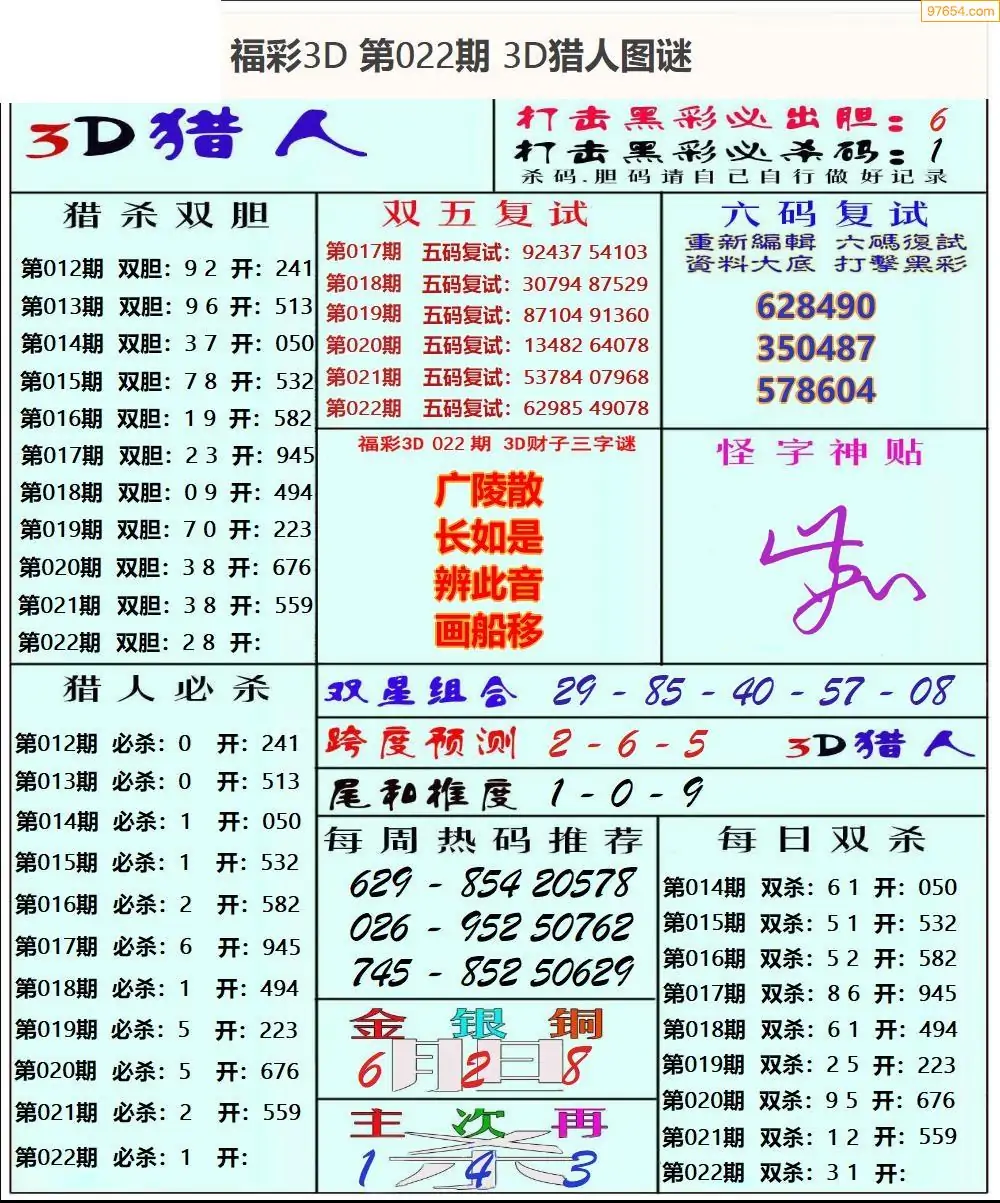 97654.com
福彩3D 第022期 3D猎人图谜
3D猎人
打击黑彩必出胆：6
打击黑彩必杀码：1
杀码.胆码请自己自行做好记录
猎杀双胆
第012期 双胆：9 2 开：241
第013期 双胆：9 6 开：513
第014期 双胆：3 7 开：050
第015期 双胆：7 8 开：532
第016期 双胆：1 9 开：582
第017期 双胆：2 3 开：945
第018期 双胆：0 9 开：494
第019期 双胆：7 0 开：223
第020期 双胆：3 8 开：676
第021期 双胆：3 8 开：559
第022期 双胆：2 8 开：
双五复试
第017期 五码复试：92437 54103
第018期 五码复试：30794 87529
第019期 五码复试：87104 91360
第020期 五码复试：13482 64078
第021期 五码复试：53784 07968
第022期 五码复试：62985 49078
六码复试
重新編輯 六碼復試
資料大底 打擊黑彩
628490
350487
578604
福彩3D 022 期 3D财子三字谜
广陵散
长如是
辨此音
画船移
怪字神贴
猎人必杀
第012期 必杀：0 开：241
第013期 必杀：0 开：513
第014期 必杀：1 开：050
第015期 必杀：1 开：532
第016期 必杀：2 开：582
第017期 必杀：6 开：945
第018期 必杀：1 开：494
第019期 必杀：5 开：223
第020期 必杀：5 开：676
第021期 必杀：2 开：559
第022期 必杀：1 开：
双星组合 29 - 85 - 40 - 57 - 08
跨度预测 2 - 6 - 5 3D猎人
尾和推度 1 - 0 - 9
每周热码推荐
629 - 854 20578
026 - 952 50762
745 - 852 50629
金 银 铜
胆
6 2 8
主 次 再
杀
1 4 3
每日双杀
第014期 双杀：6 1 开：050
第015期 双杀：5 1 开：532
第016期 双杀：5 2 开：582
第017期 双杀：8 6 开：945
第018期 双杀：6 1 开：494
第019期 双杀：2 5 开：223
第020期 双杀：9 5 开：676
第021期 双杀：1 2 开：559
第022期 双杀：3 1 开：